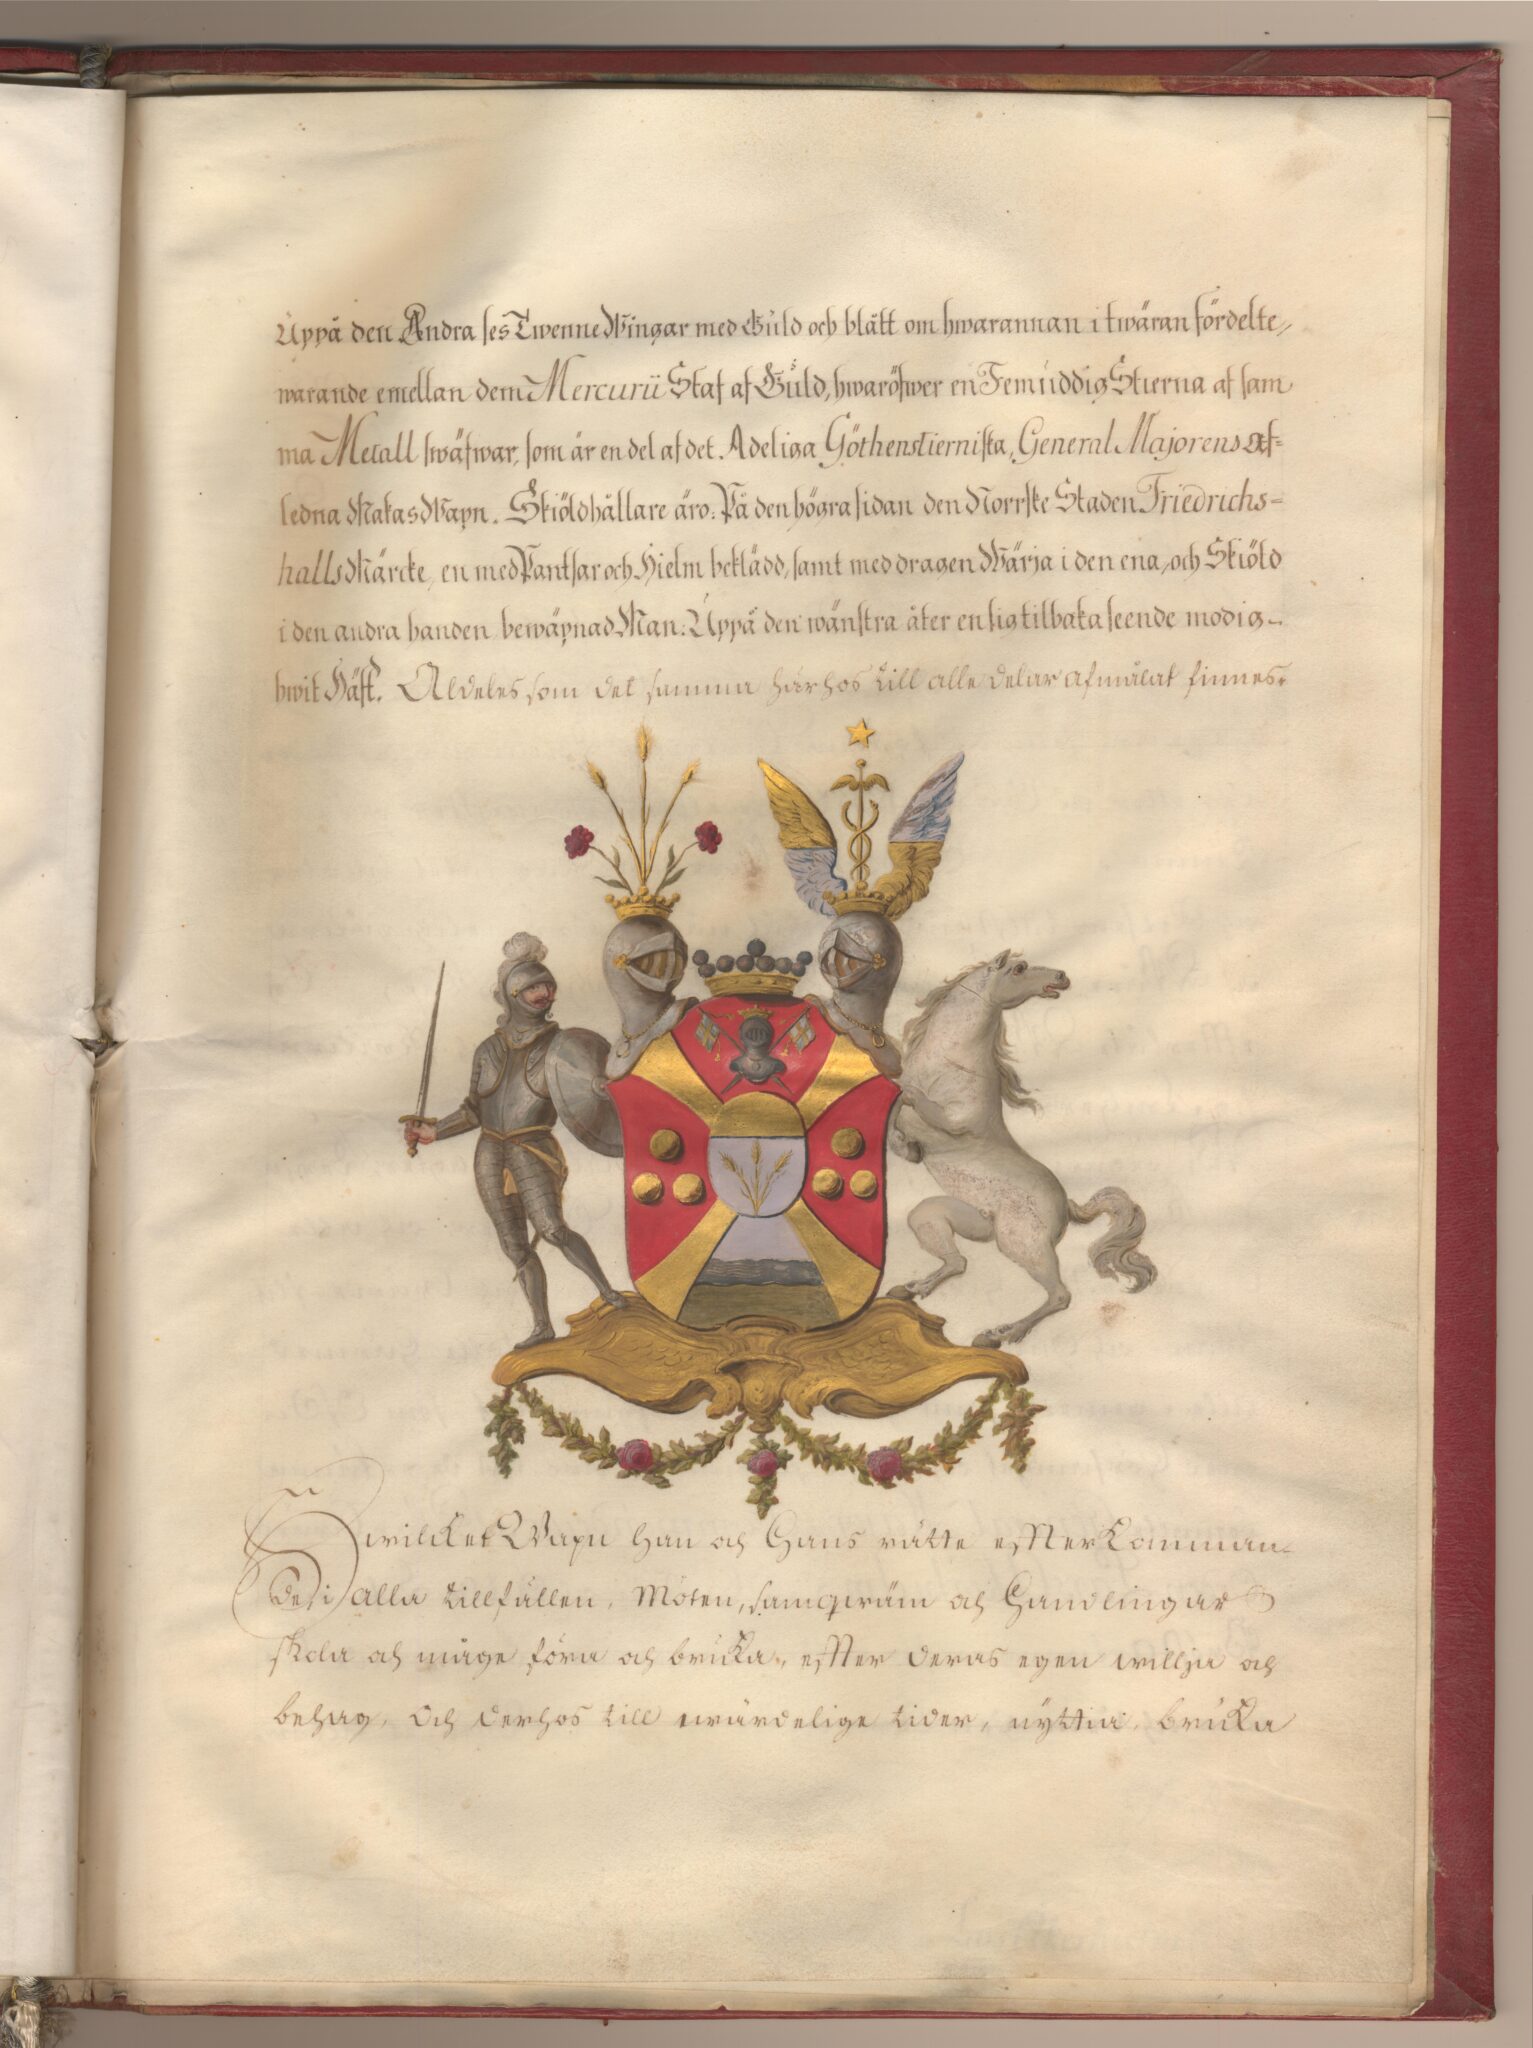 Uppå den Andra ses Twenne Wingar med Guld och blått om hwarannan i twäran fördelte,
warande emellan dem Mercurii Staf af Guld, hwaröfwer en Femuddig Stierna af sam
ma Metall swäfwar, som är en del af det Adeliga Göthenstiernska, General Majorens af-
ledna Makas Wapn. Skiöldhållare äro: På den högra sidan den Norrske Staden Friedrichs-
halls Märcke, en med Pantsar och Hielm beklädd, samt med dragen Wärja i den ena, och Skiöld
i den andra handen bewäpnad Man: Uppå den wänstra åter en sig tilbaka seende modig
hwit Häst. Aldeles som det samma härhos till alle delar afmålat finnes.
Hwilcket Wapn han och Hans rätte efterkomman-
de i alla tillfällen, Möten, samqwäm och Handlingar
skola och måge föra och bruka, efter deras egen willja och
behag, Och derhos till ewärdelige tider, nyttia, bruka